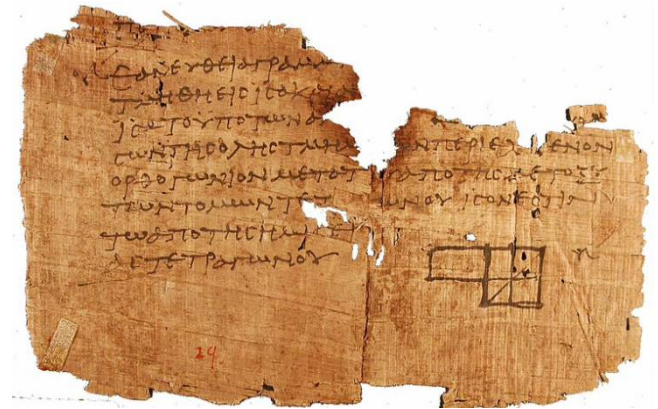 ΕΑΝ ΕΥΘΕΙΑ ΓΡΑΜΜ
ΤΜΗΘΗ ΕΙϹ ΙϹΑ ΚΑΙ Α
ΙϹΑ ΤΟ ΥΠΟ ΤΩΝ Α
ϹΩΝ ΤΗϹ ΟΛΗϹ ΤΜΗΜ ΩΝ ΠΕΡΙΕΧ ΜΕΝΟΝ
ΟΡΘΟΓΩΝΙΟΝ ΜΕΤΑ Τ Υ ΑΠΟ ΤΗϹ ΜΕΤΟΞΥ
ΤΩΝ ΤΟΜΩΝ ΤΕΤ ΩΝΟΥ ΙϹΟΝ ΕϹΤΙΝ
ΤΩ ΑΠΟ ΤΗϹ ΗΜΙϹΕΙ
ΑϹ ΤΕΤΡΑΓΩΝΟΥ
29